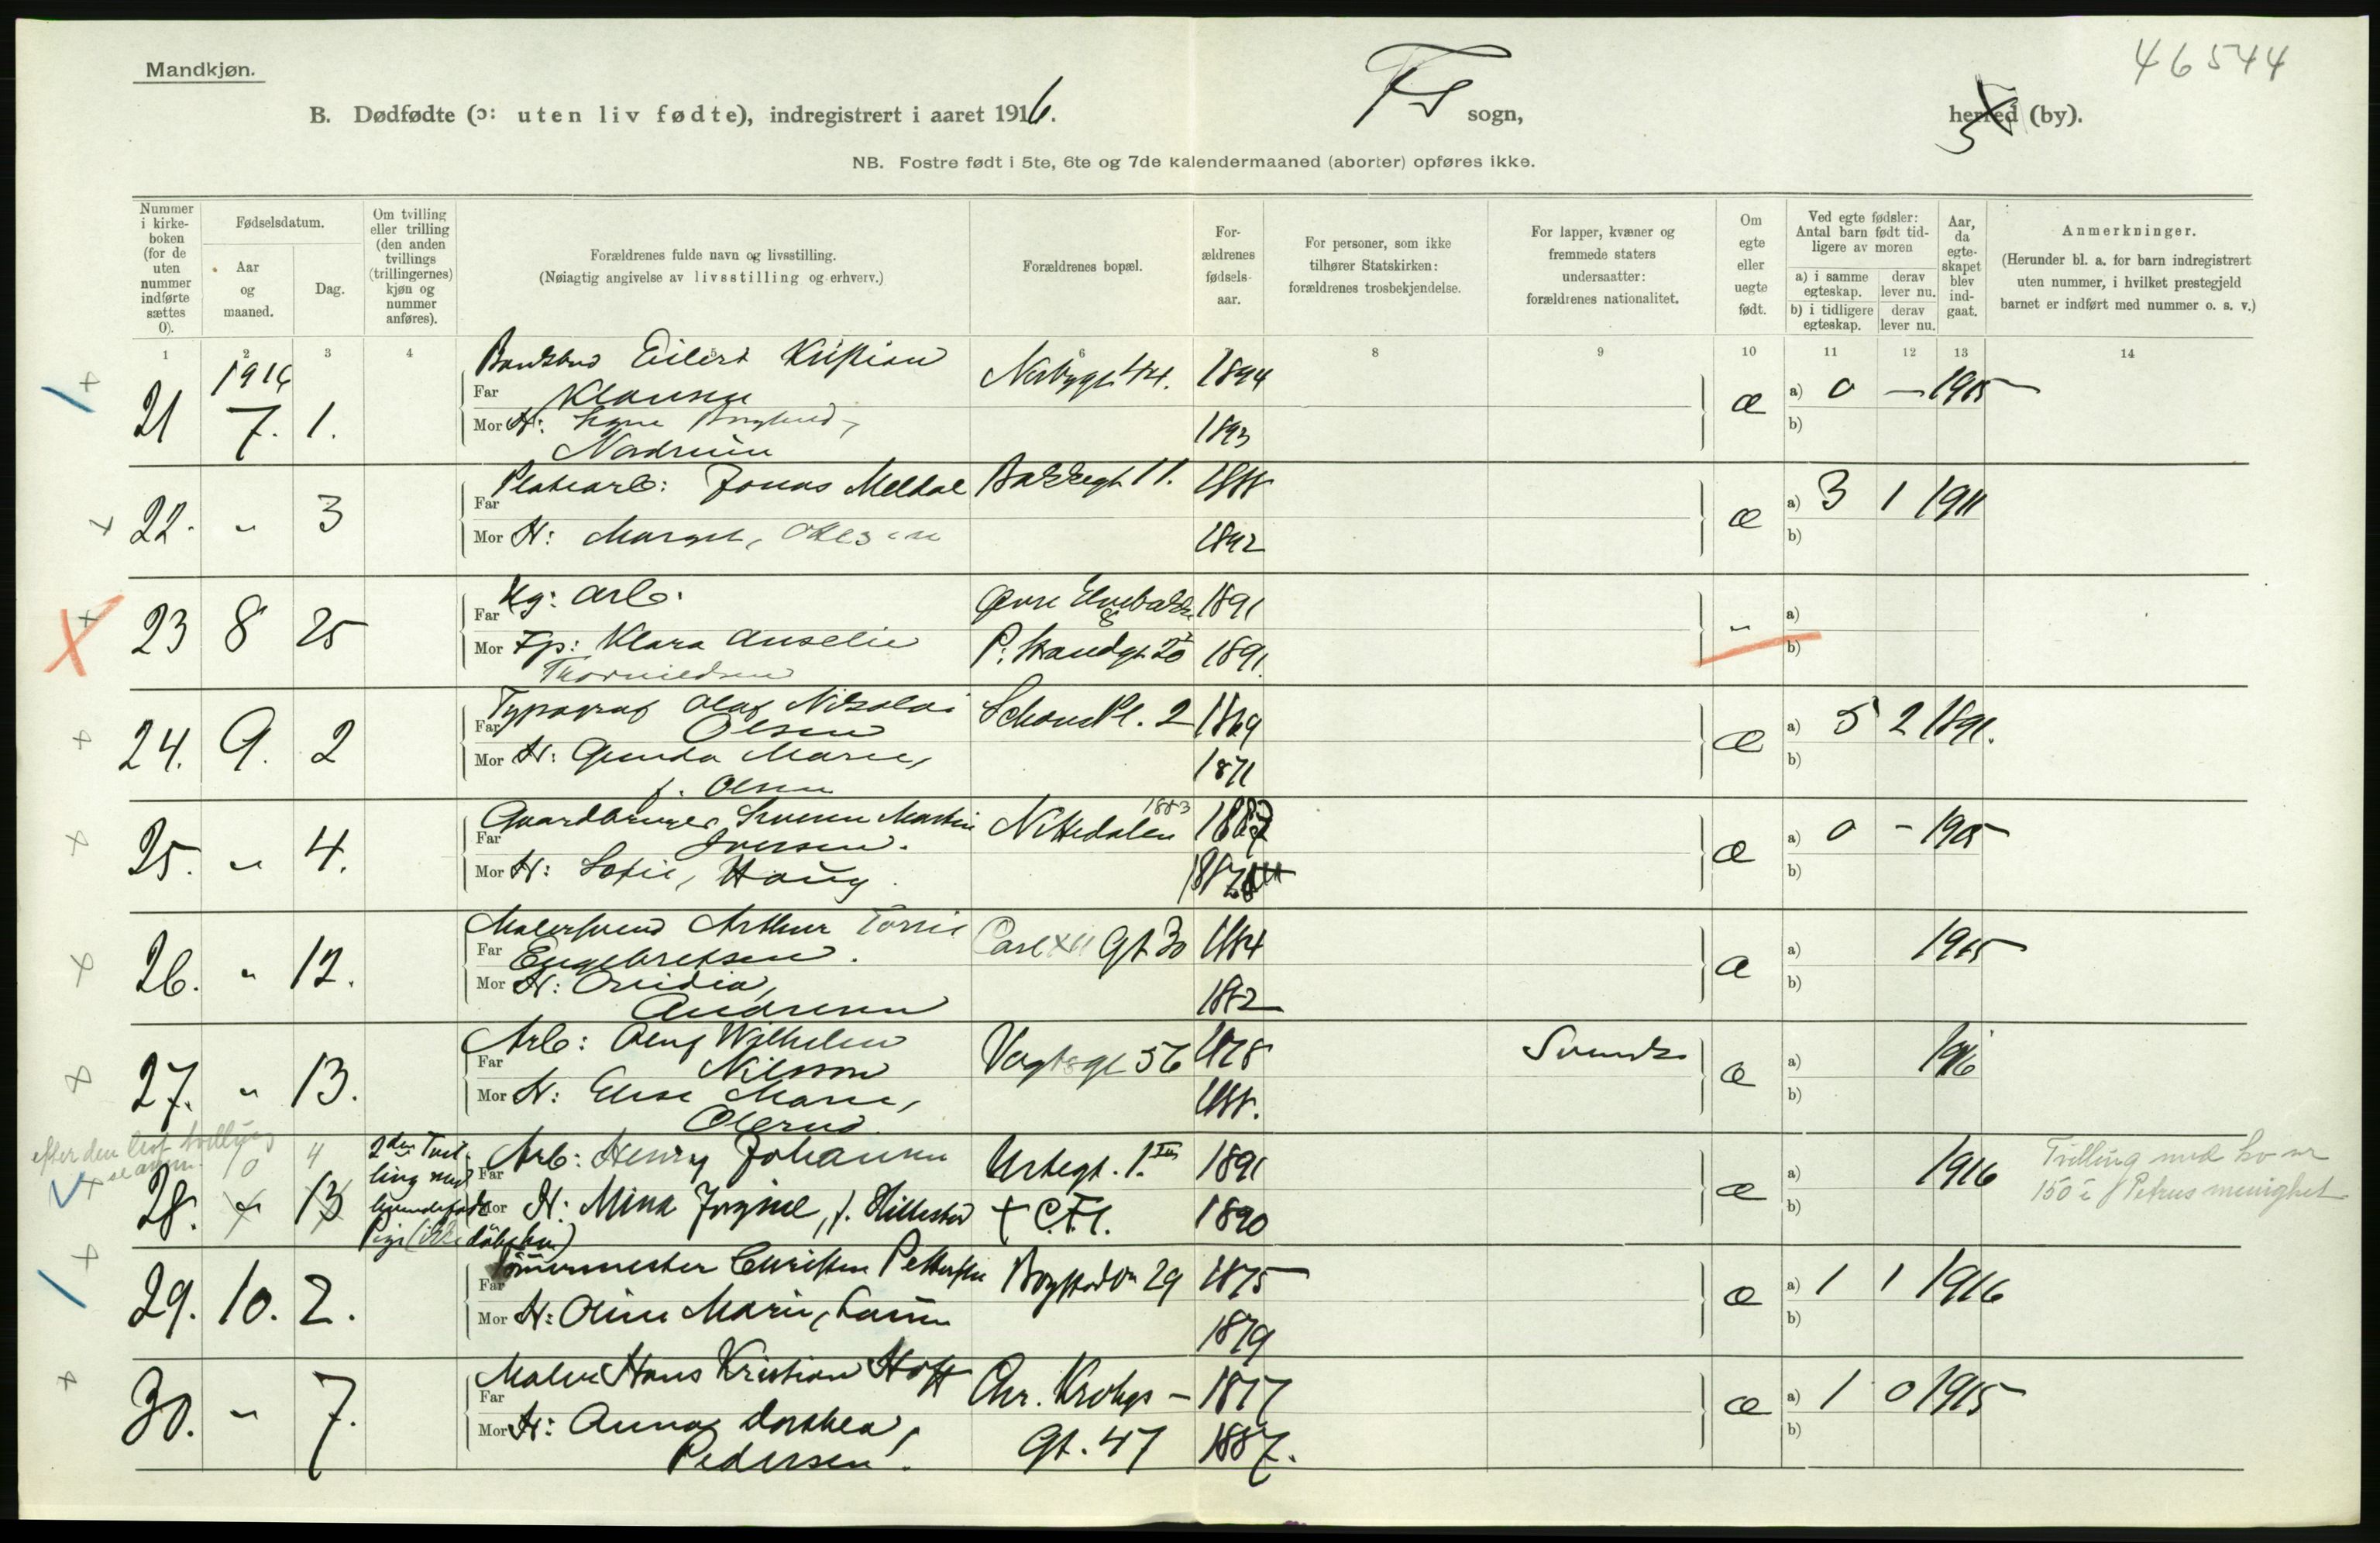 46544
Mandkjøn.
B. Dødfødte (ɔ: uten liv fødte), indregistrert i aaret 1916. sogn, herred (by).
NB. Fostre født i 5te, 6te og 7de kalendermaaned (aborter) opføres ikke.
Nummer i kirke-boken (for de uten nummer indførte sættes 0).
Fødselsdatum.
Aar og maaned.
Dag.
Om tvilling eller trilling (den anden tvillings (trillingernes) kjøn og nummer anføres).
Forældrenes fulde navn og livsstilling.
(Nøiagtig angivelse av livsstilling og erhverv.)
Forældrenes bopæl.
For-ældrenes fødsels-aar.
For personer, som ikke tilhører Statskirken: forældrenes trosbekjendelse.
For lapper, kvæner og fremmede staters undersaatter: forældrenes nationalitet.
Om egte eller uegte født.
Ved egte fødsler: Antal barn født tid-ligere av moren
a) i samme egteskap. derav lever nu.
b) i tidligere egteskap. derav lever nu.
Aar, da egte-skapet blev ind-gaat.
Anmerkninger.
(Herunder bl. a. for barn indregistrert uten nummer, i hvilket prestegjeld barnet er indført med nummer o. s. v.)
1 2 3 4 6 8 9 10 11 12 13 14
1916
21 7. 1.
Eilert Kristian
Far Klausen
44. 1894
Mor H: Signe
Nordrum
1893
æ a) 0 — 1915
b)
22. " 3
Far Jonas Meldal Bakkegt 11. 1888
Mor H: Margit, Olesen 1892
æ a) 3 1 1911
b)
23 8 25
Far Ug: Arb. Øvre 1891
Mor Fp: Klara Anselie P: Strandgt. 20 1891.
" a)
b)
24. 9. 2
Typograf Olaf Nikolai
Far Olsen
Schous Pl. 2 1869
Mor H: Gunda Marie,
f. Olsen
1871
æ a) 5 2 1891.
b)
25. " 4.
Gaardbruger Martin
Far Iversen.
Nittedalen 1883
Mor H: Sofie, Haug
æ a) 0 - 1915
b)
26. " 12.
Malersvend Arthur
Far Engebretsen.
Carl XII Gt 30 1884
Mor H: Ovidia,
Andresen
1882
æ a) 1915
b)
27. " 13.
Arb: Wilhelm
Far Nilsson
Vogtsgt 56 1878
Mor H: Elise Marie,
Olerud.
1888.
Svensk
æ a) 1916
b)
efter den
10 4
28. " 13
2den Tvilling med levendefødt Pige (ikke døbt)
Far Arb: Henry Johansen Urtegt. 1. 1891
Mor H: Mina Jørgine, f. Hillestad + C.F.l. 1890
æ a) 1916
b)
Trilling med
150 i Petrus menighet
29. 10. 2.
Far Tömmermester Christen Pettersen 29 1875
Mor H: Oline Marie, 1879
æ a) 1 1 1916
b)
30. " 7.
Far Maler Hans Kristian Hoff Chr. Krohgs - 1877
Mor H: Anna Dorthea,
Pedersen.
Gt. 47 1887.
æ a) 1 0 1915
b)